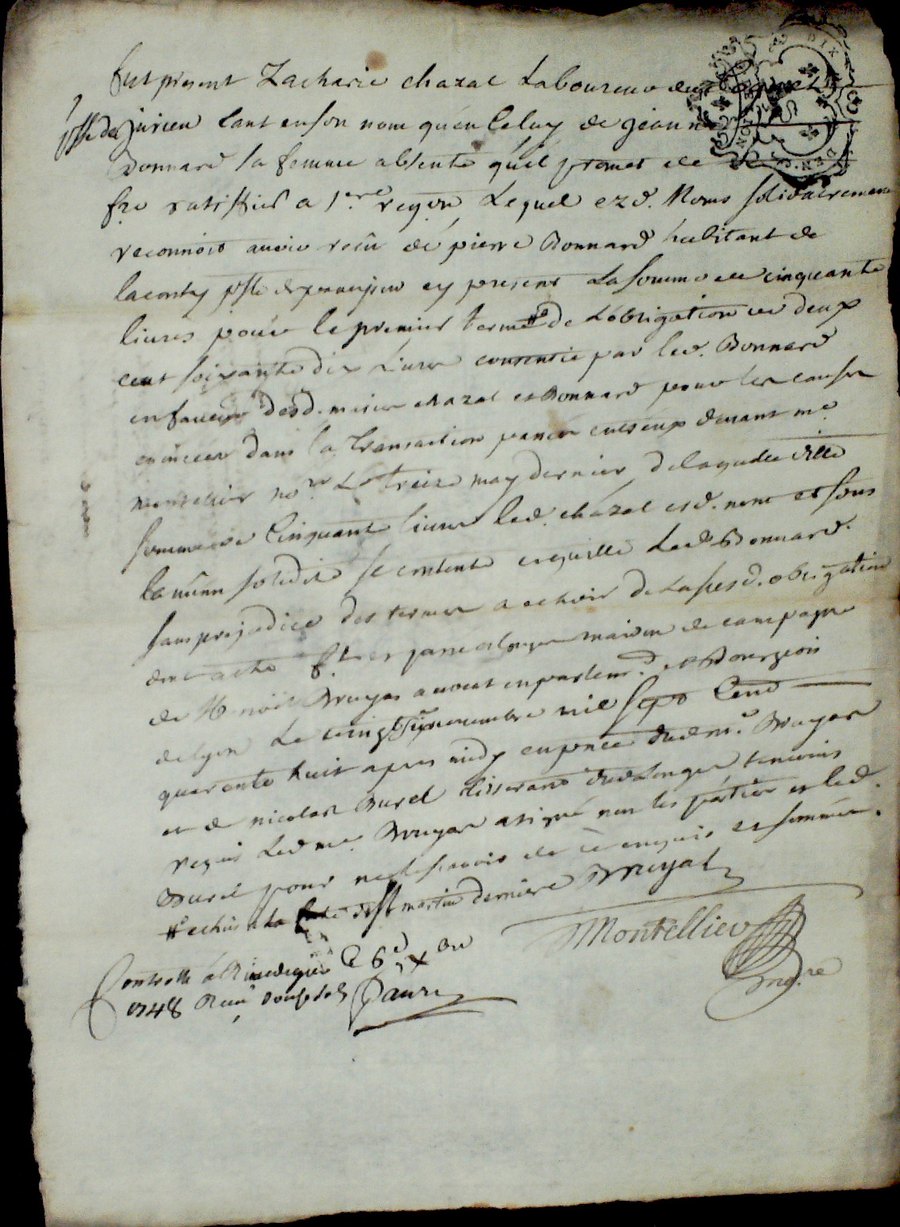 fut present Zacharie chazal Laboureur du
psse de Jurieu tant en son nom qu'en Celuy de jeanne
Bonnard sa femme absente qu'il promet de
fre ratiffier a 1ere reqon, Lequel ezd. Noms solidairement
reconnoit avoir reçu de pierre Bonnard habitant de
psse de cy present La somme de cinquante
livres pour le premier terme # de L'obligation de deux
cent soixante dix Livres consentie par led. Bonnard
en faveur desd. mariés chazal et Bonnard pour les causes
enoncées dans la Transaction passée entr'eux devant me
montellier nore Le treize may dernier de laquelle ditte
somme de Cinquante livres led. chazal esd. noms et sous
la même solidité se contente en quitte Led. Bonnard.
sans prejudice des termes a echoir de Lasusd. obligation
dont acte fait et passé maison de campagne
de Me noël Bruyas avocat en parlemt. et Bourgeois
de Lyon Le vingt six novembre mil sept Cent
quarante huit apres midy en pnce dud. me. Bruyas
et de nicolas Burel tisserand temoins
requis Led. me. Bruyas a signé non les parties et led.
Burel pour ne le scavoir de ce enquis et sommés.
# echus a la fete de st martin derniere Bruyas
Montellier
nore
Controllé à le 6e Xbre
1748 Reçu douze sols Faure